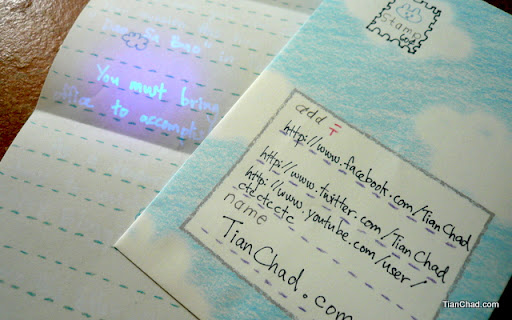 Sa Bao" in
You must bring
to accompl
Stamp
add =
http://www.facebook.com/TianChad
http://www.twitter.com/TianChad
http://www.youtube.com/user/
ctctctctc
name
TianChad.com
TianChad.com